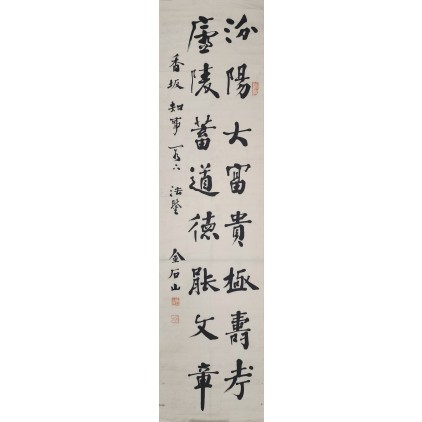 汾陽大富貴極壽考
廬陵蓄道德能文章
香坂知事 法鑒 金石山